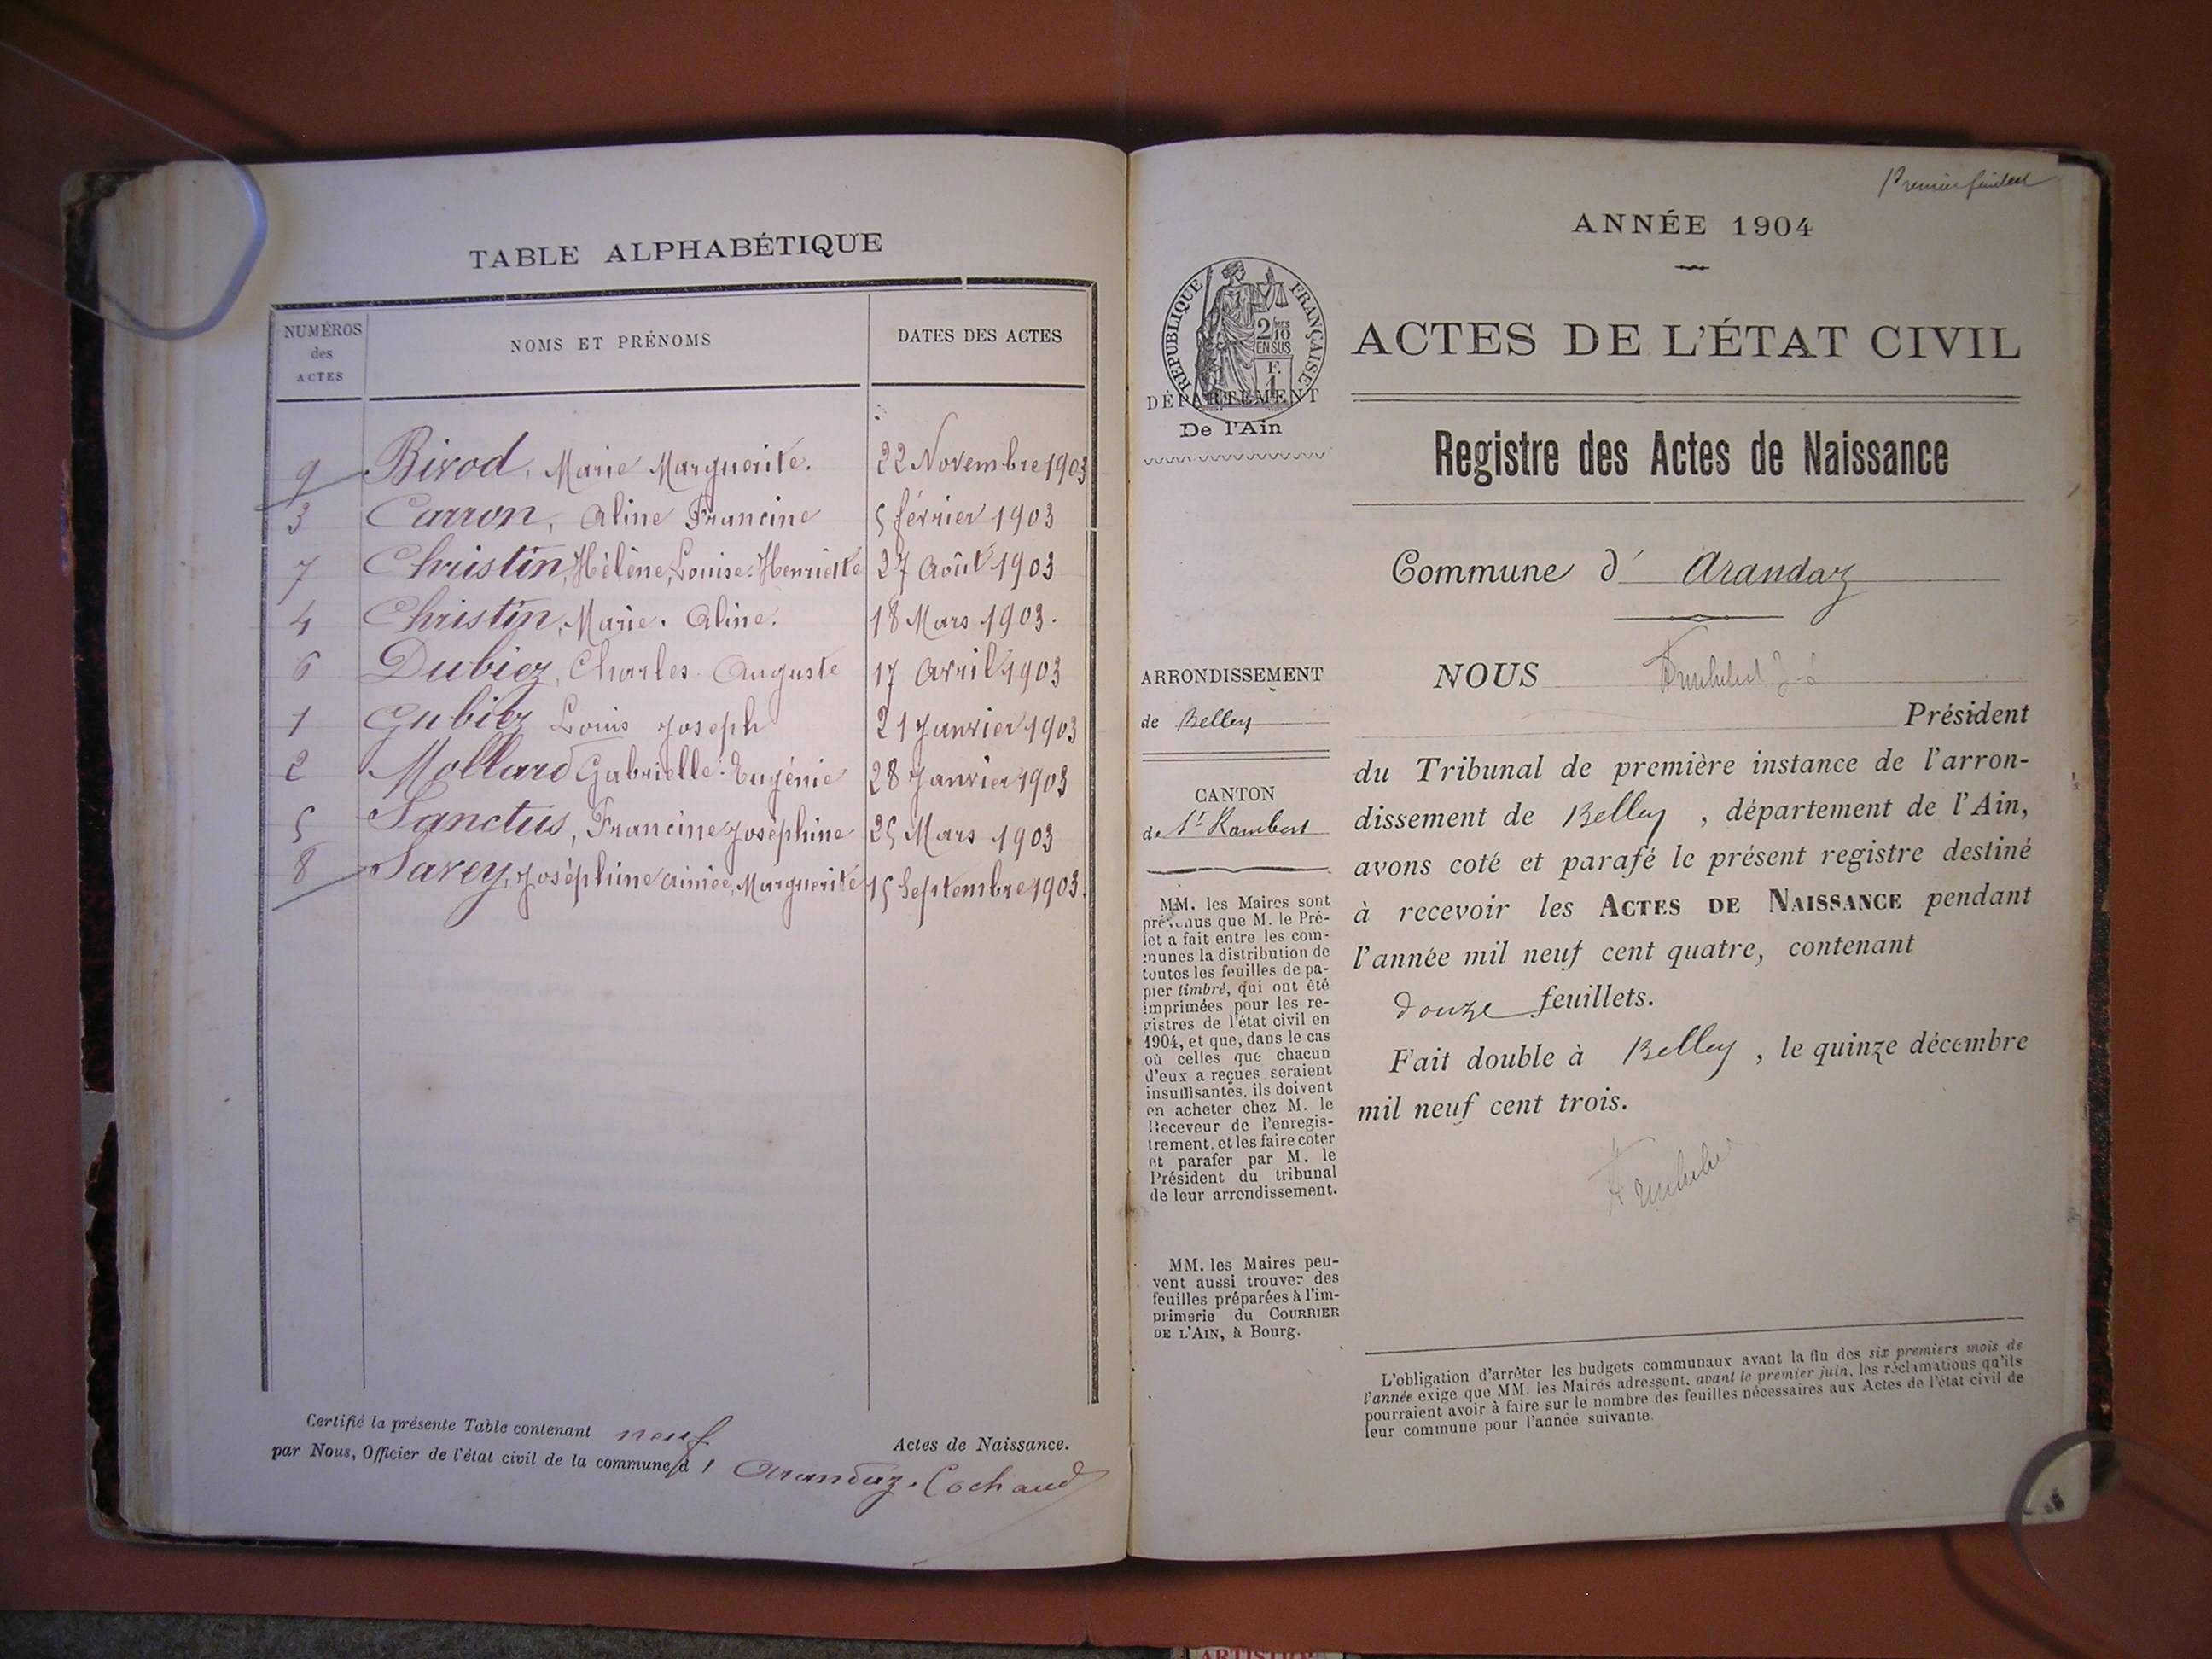 TABLE ALPHABÉTIQUE
NUMÉROS des ACTES
NOMS ET PRÉNOMS
DATES DES ACTES
9 Birod, Marie Marguerite. 22 Novembre 1903
3 Carron, Aline Francine 5 février 1903
7 Christin, Hélène, Louise Henriette 27 Août 1903
4 Christin, Marie. Aline. 18 Mars 1903.
6 Dubiez, Charles Auguste 17 Avril 1903
1 Gubiez Louis Joseph 21 Janvier 1903
2 Mollard Gabrielle Eugénie 28 Janvier 1903
5 Sanctus, Francine Joséphine 25 Mars 1903
8 Savey, Joséphine Aimée, Marguerite 15 Septembre 1903.
Certifié la présente Table contenant neuf Actes de Naissance.
par Nous, Officier de l'état civil de la commune d' Arandaz. Cochaud
Premier feuillet
ANNÉE 1904
RÉPUBLIQUE FRANÇAISE
2/10 MES
EN SUS
F.
1
DÉPARTEMENT
De l'Ain
ARRONDISSEMENT
de Belley
CANTON
de St Rambert
MM. les Maires sont
prévenus que M. le Pré-
fet a fait entre les com-
munes la distribution de
toutes les feuilles de pa-
pier timbré, qui ont été
imprimées pour les re-
gistres de l'état civil en
1904, et que, dans le cas
où celles que chacun
d'eux a reçues seraient
insuffisantes, ils doivent
en acheter chez M. le
Receveur de l'enregis-
trement, et les faire coter
et parafer par M. le
Président du tribunal
de leur arrondissement.
MM. les Maires peu-
vent aussi trouver des
feuilles préparées à l'im-
primerie du COURRIER
DE L'AIN, à Bourg.
ACTES DE L'ÉTAT CIVIL
Registre des Actes de Naissance
Commune d' Arandaz
NOUS
Président
du Tribunal de première instance de l'arron-
dissement de Belley, département de l'Ain,
avons coté et parafé le présent registre destiné
à recevoir les ACTES DE NAISSANCE pendant
l'année mil neuf cent quatre, contenant
douze feuillets.
Fait double à Belley, le quinze décembre
mil neuf cent trois.
L'obligation d'arrêter les budgets communaux avant la fin des six premiers mois de
l'année exige que MM. les Maires adressent, avant le premier juin, les réclamations qu'ils
pourraient avoir à faire sur le nombre des feuilles nécessaires aux Actes de l'état civil de
leur commune pour l'année suivante.